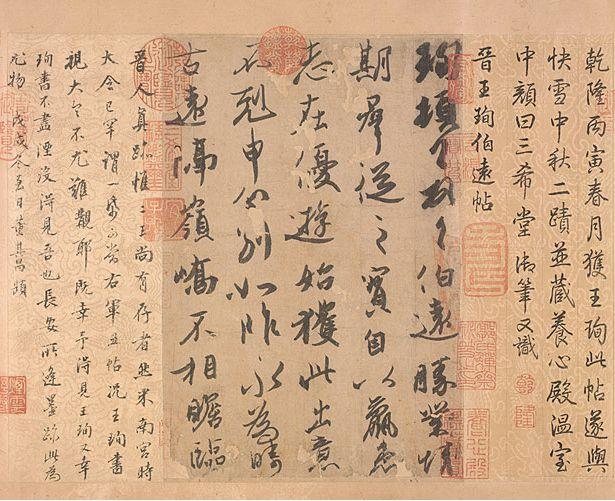 乾隆丙寅春月獲王珣此帖遂與
快雪中秋二蹟並藏養心殿溫室
中顏曰三希堂御筆又識
晉王珣伯遠帖
珣頓首頓首伯遠勝業情
期羣從之寶自以羸患
志在優遊始獲此出意
不剋申分別如昨永為疇
古遠隔嶺嶠不相瞻臨
晉人真跡惟二王尚有存者然米南宮時
大令已罕謂一帋可當右軍五帖況王珣書
視大令不尤難覯耶既幸予得見王珣又幸
珣書不盡湮沒得見吾也長安所逢墨跡此為
尤物戊戌冬至日董其昌題